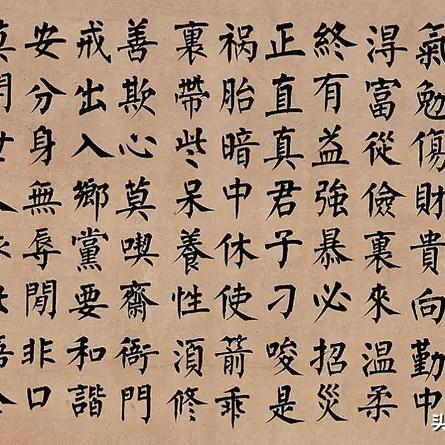 氣勉傷財貴向勤中
淂富從儉裏來温柔
終有益強暴必招災
正直真君子刁唆是
祸胎暗中休使箭乖
裏帶些呆養性湏修
善欺心莫喫齋衙門
戒出入鄉黨要和諧
安分身無辱閒非口
莫開世人